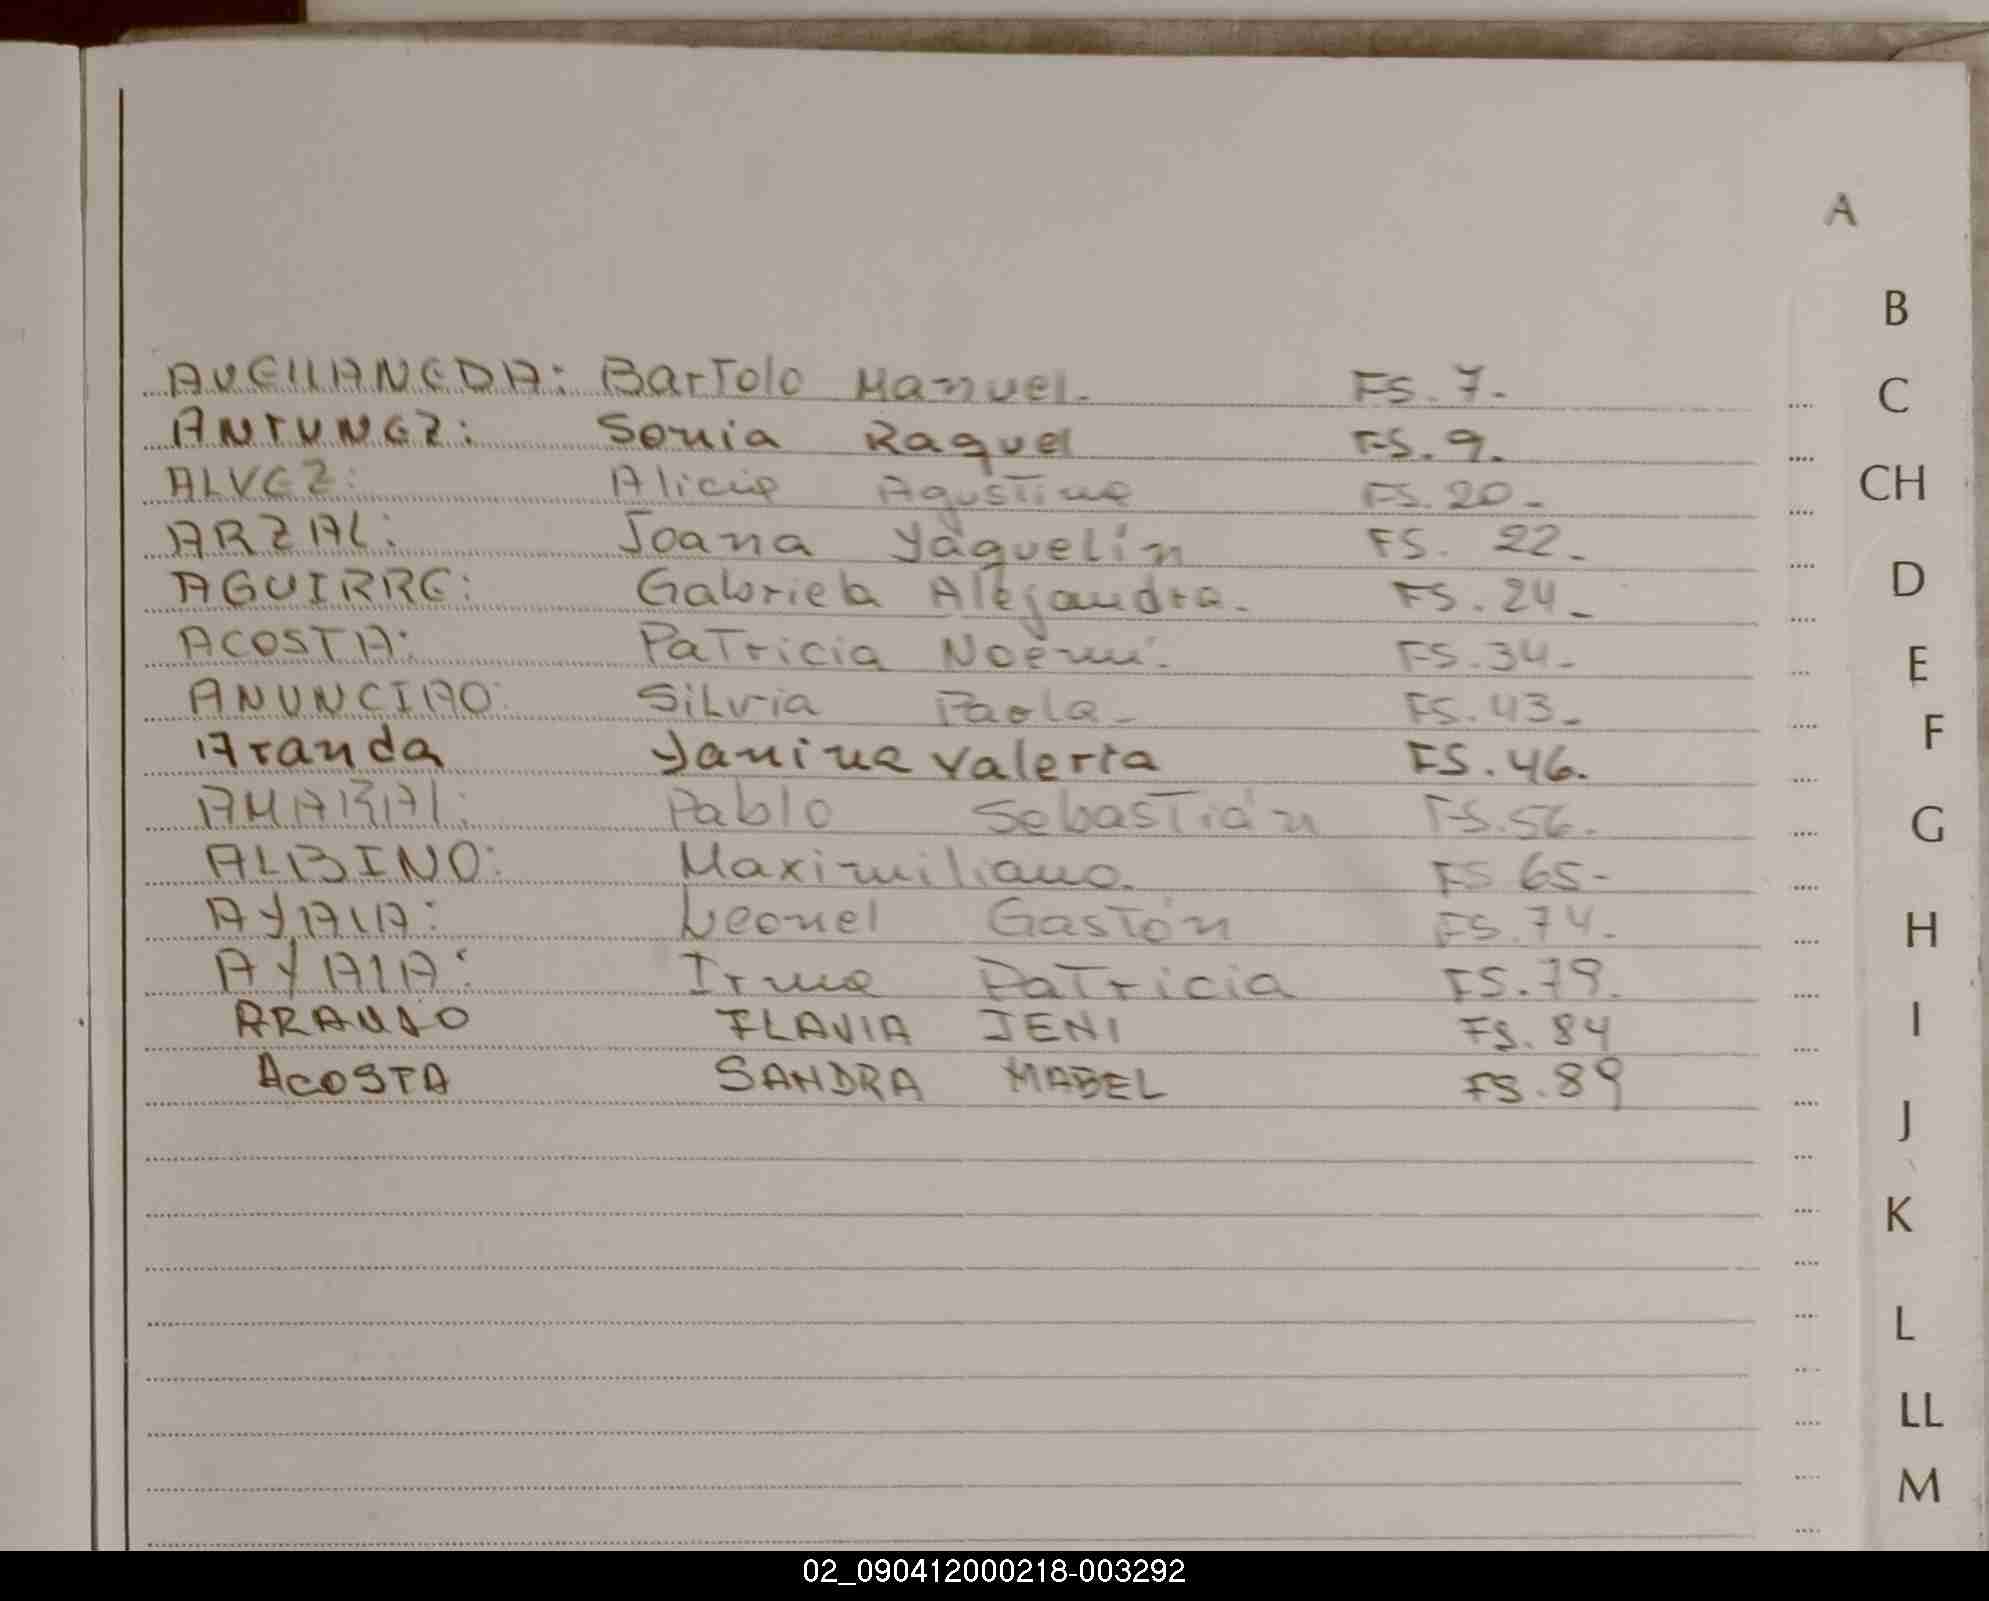 A
B
C
CH
D
E
F
G
H
I
J
K
L
LL
M
AVELLANEDA: Bartolo Manuel. FS. 7.
ANTUNEZ: Sonia Raquel FS. 9.
ALVEZ: Alicia Agustina FS. 20-
ARZAL: Joana Yaquelín FS. 22-
AGUIRRE: Gabriela Alejandra. FS. 24-
ACOSTA: Patricia Noemí. FS. 34-
ANUNCIAO: Silvia Paola- FS. 43-
Aranda Yanina Valeria FS. 46.
AMARAL: Pablo Sebastián FS. 56.
ALBINO: Maximiliano. FS 65-
AYALA: Leonel Gastón FS. 74.
AYALA: Irma Patricia FS. 79.
ARAUJO FLAVIA JENI FS. 84
ACOSTA SANDRA MABEL FS. 89
02_090412000218-003292